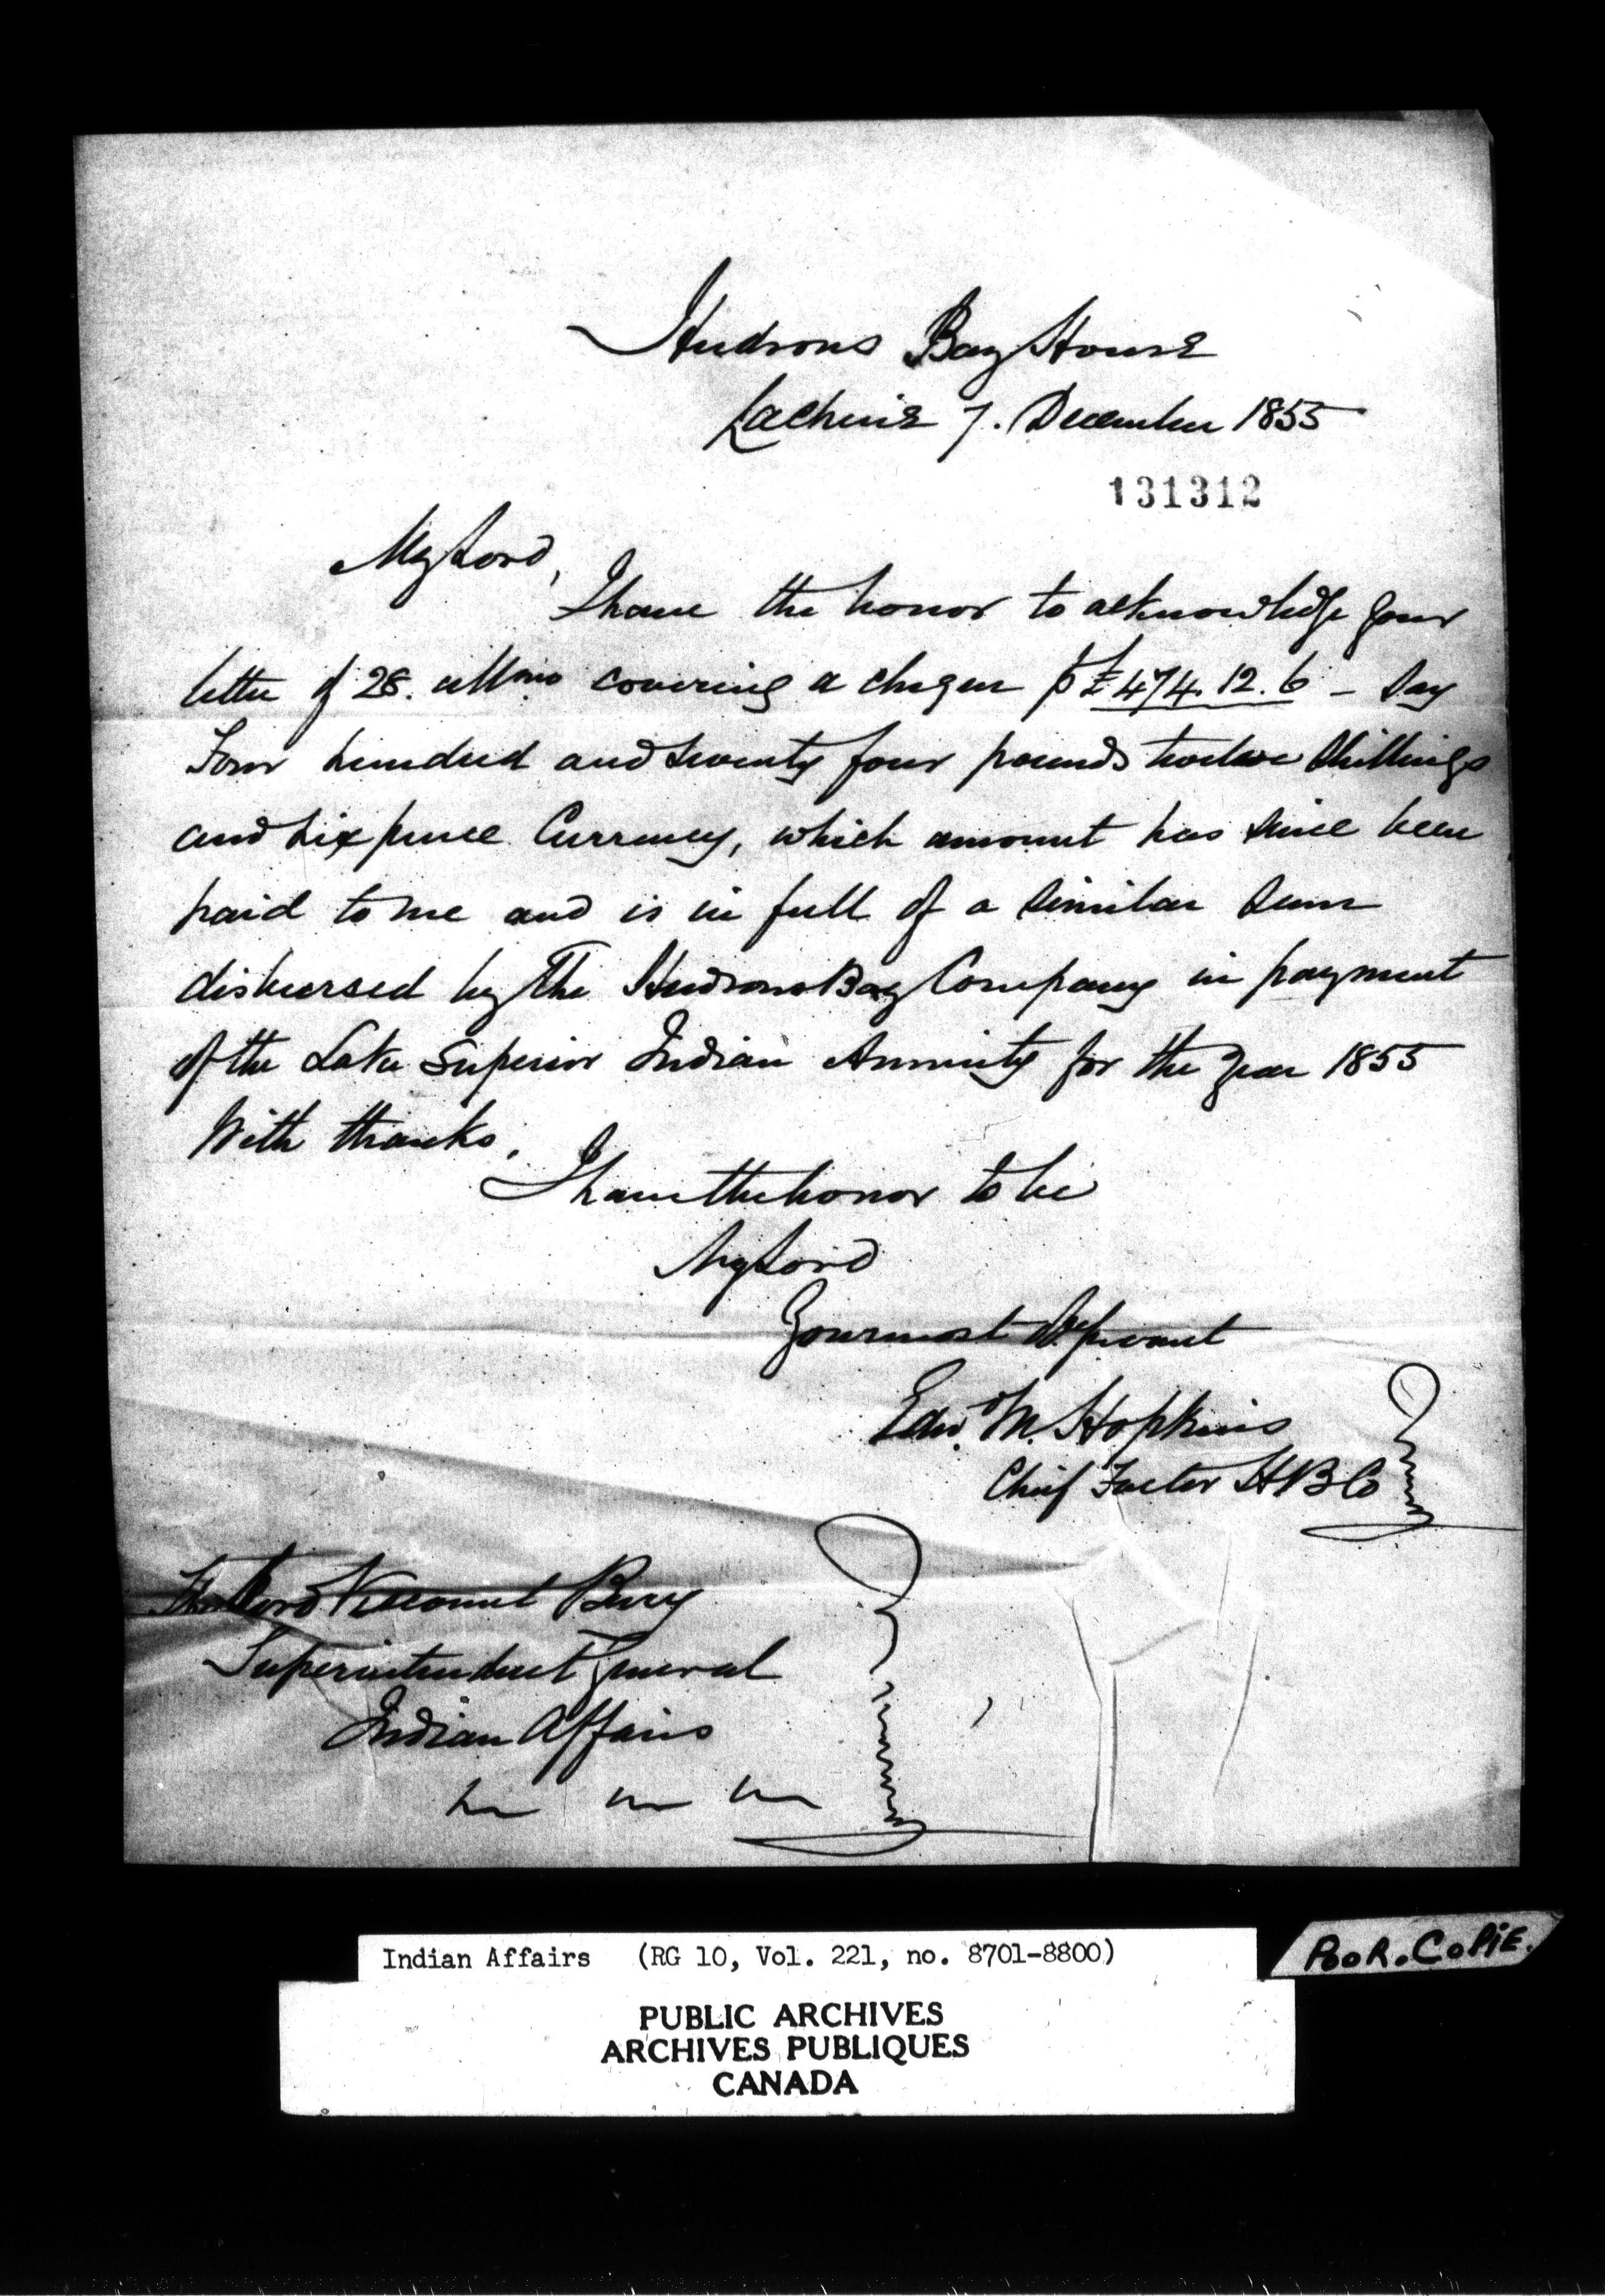 Hudsons Bay House
Lachine 7. December 1855
131312
My Lord,
I have the honor to acknowledge your
letter of 28. ultmo covering a cheque for £474.12.6 - Say
Four hundred and seventy four pounds twelve Shillings
and six pence Currency, which amount has since been
paid to me and is in full of a similar sum
disbursed by The Hudsons Bay Company in payment
of the Lake Superior Indian Annuity for the year 1855
With thanks.
I have the honor to be
My Lord
Your most Servant
Edw. M. Hopkins
Chief Factor HBCo
Lord Viscount Bury
Superintendent General
Indian Affairs
Indian Affairs (RG 10, Vol. 221, no. 8701-8800)
POOR.COPIE.
PUBLIC ARCHIVES
ARCHIVES PUBLIQUES
CANADA